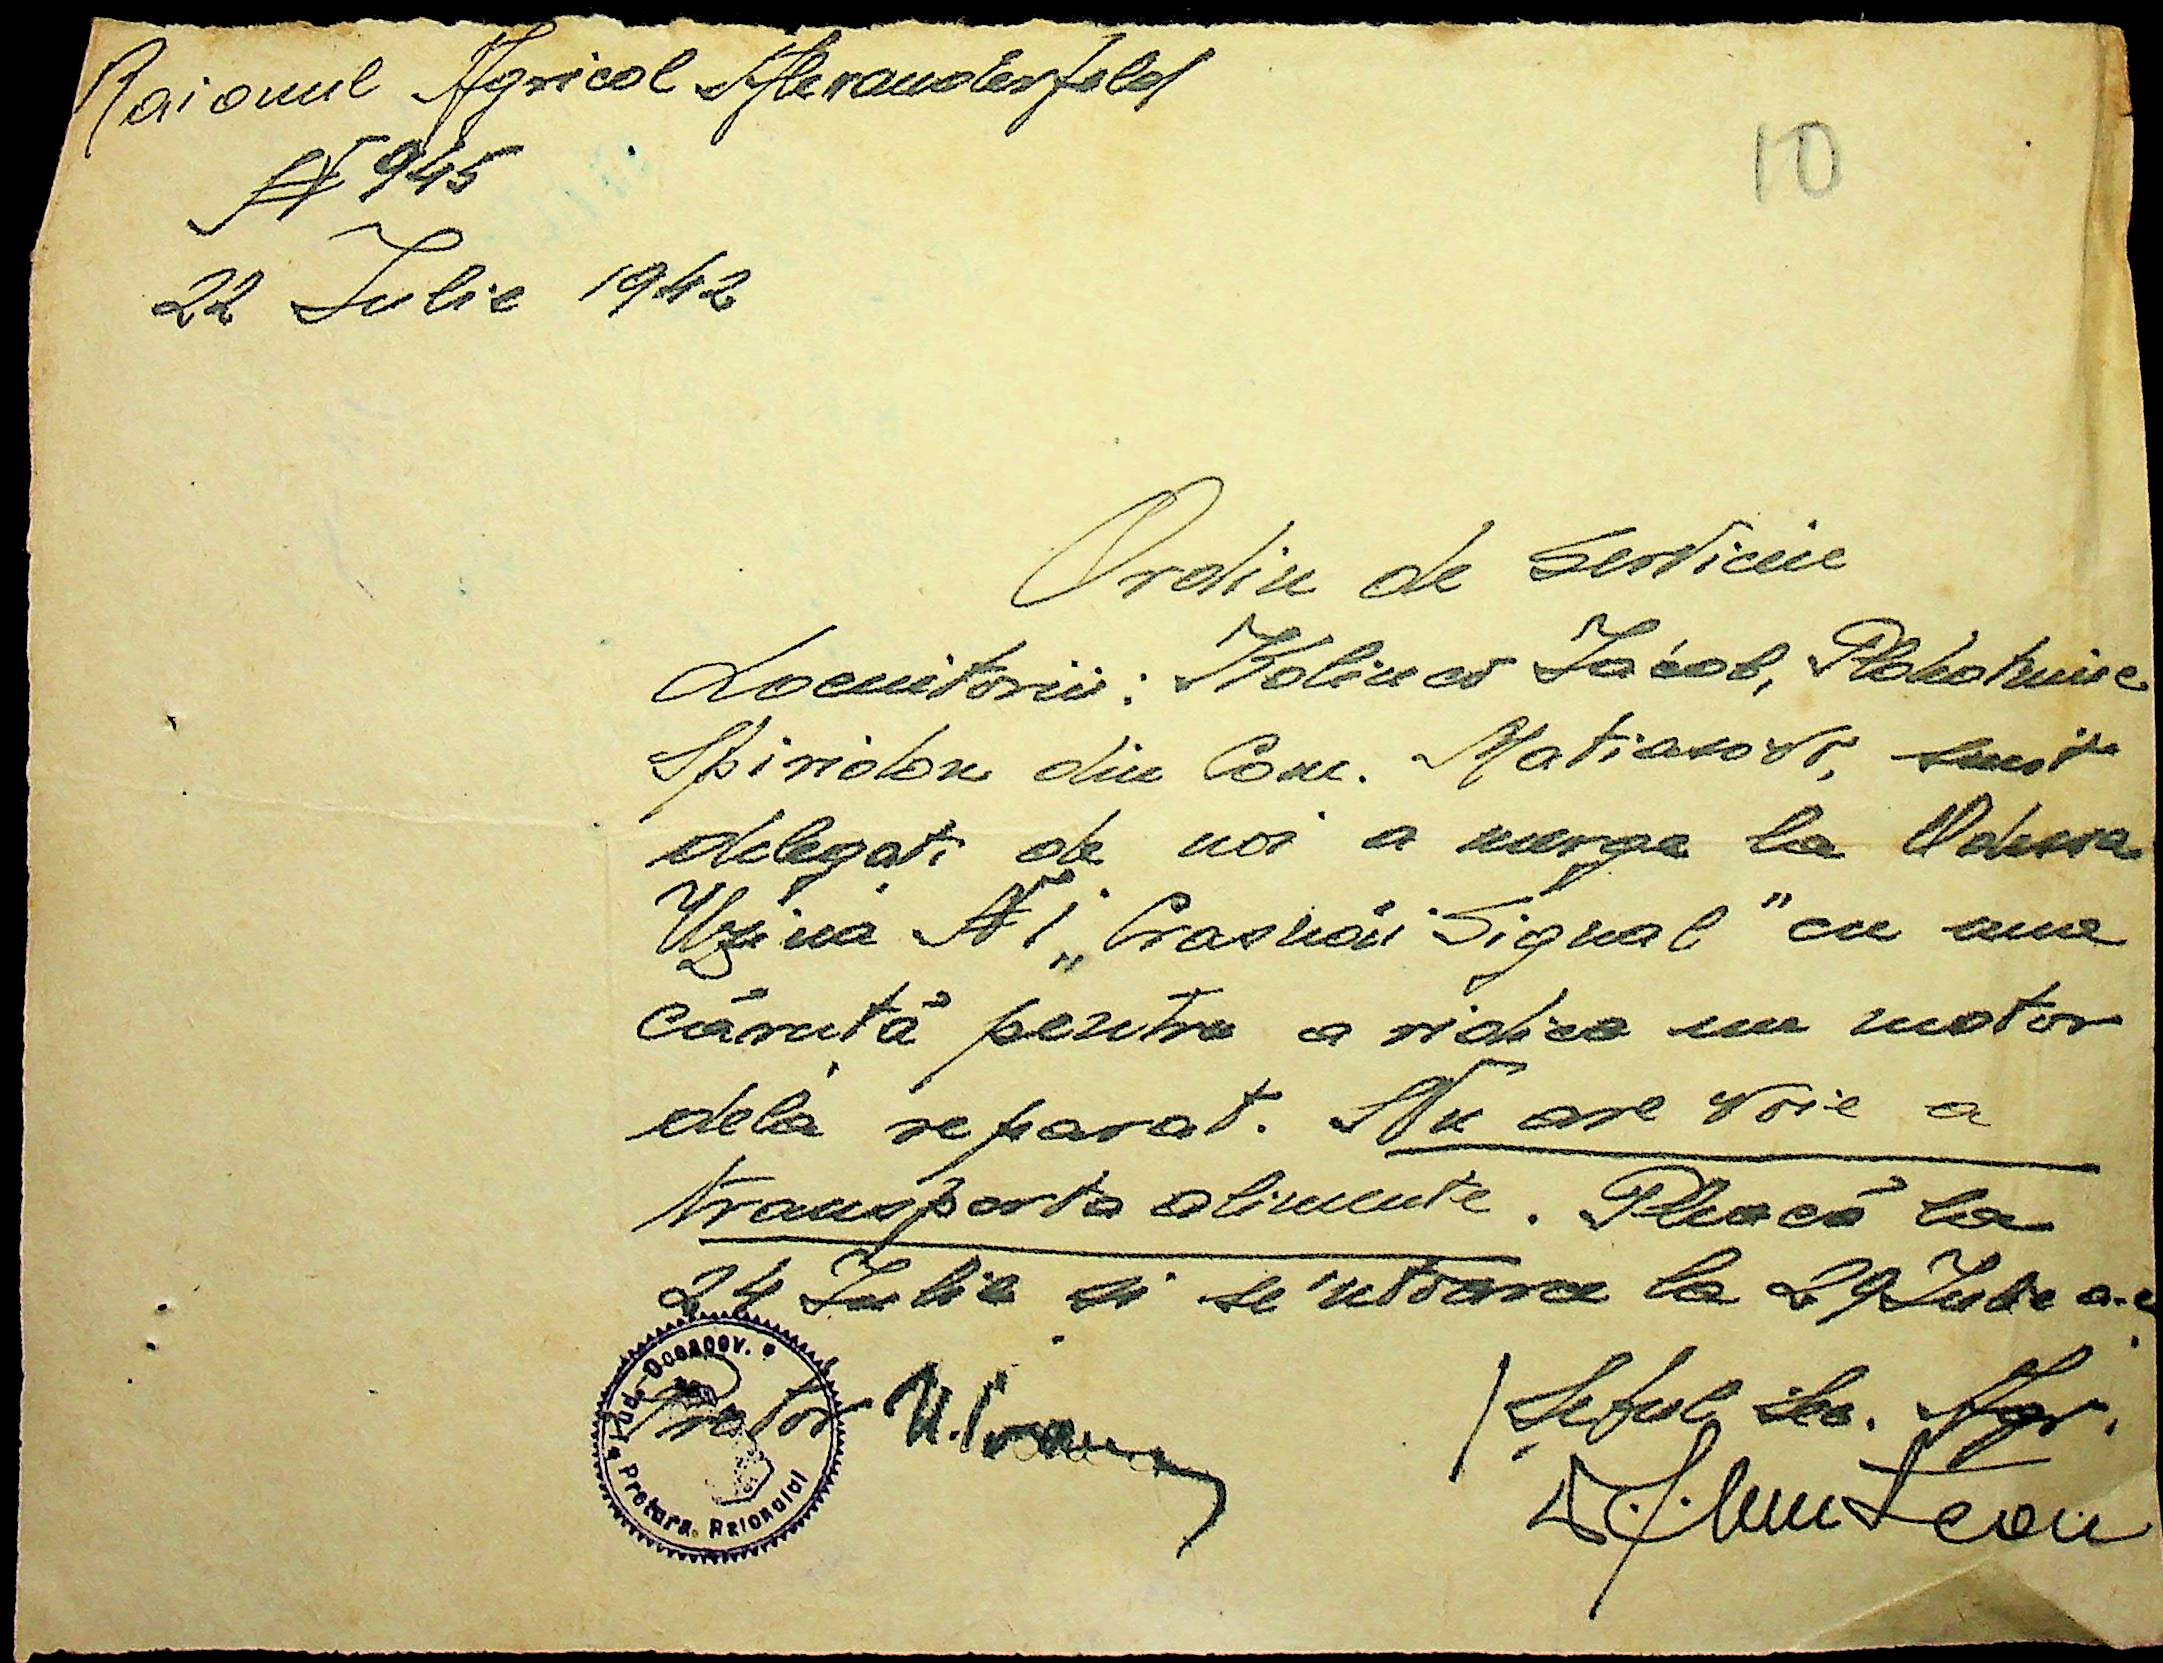 Raionul Agricol Alexanderfeld
10
N 945
22 Iulie 1942
Ordin de serviciu
Locuitorii: Kolincó Iacob,
Spiridon din Com. sunt
delegați de noi a merge la Odessa
Uzina N 1 „Crasnâi Signal" cu una
căruță pentru a ridica un motor
dela reparat. Nu are voie a
transporta alimente. Pleacă la
24 Iulie și se'ntoarce la 29 Iulie a.c.
Pretor
Șeful Agr.
Jud. Oceacov.
Pretura Raionului